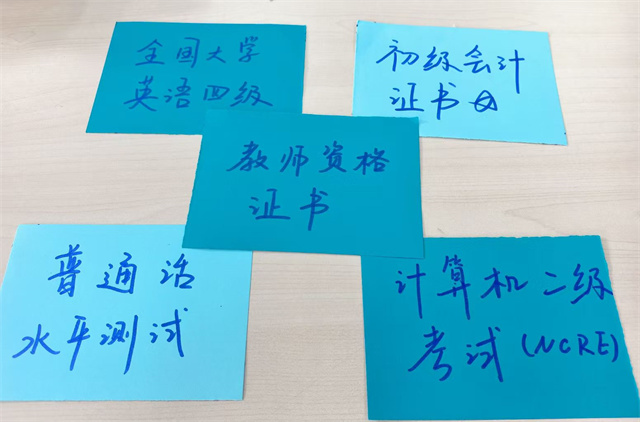 全国大学
英语四级
初级会计
证书
教师资格
证书
普通话
水平测试
计算机二级
考试(NCRE)